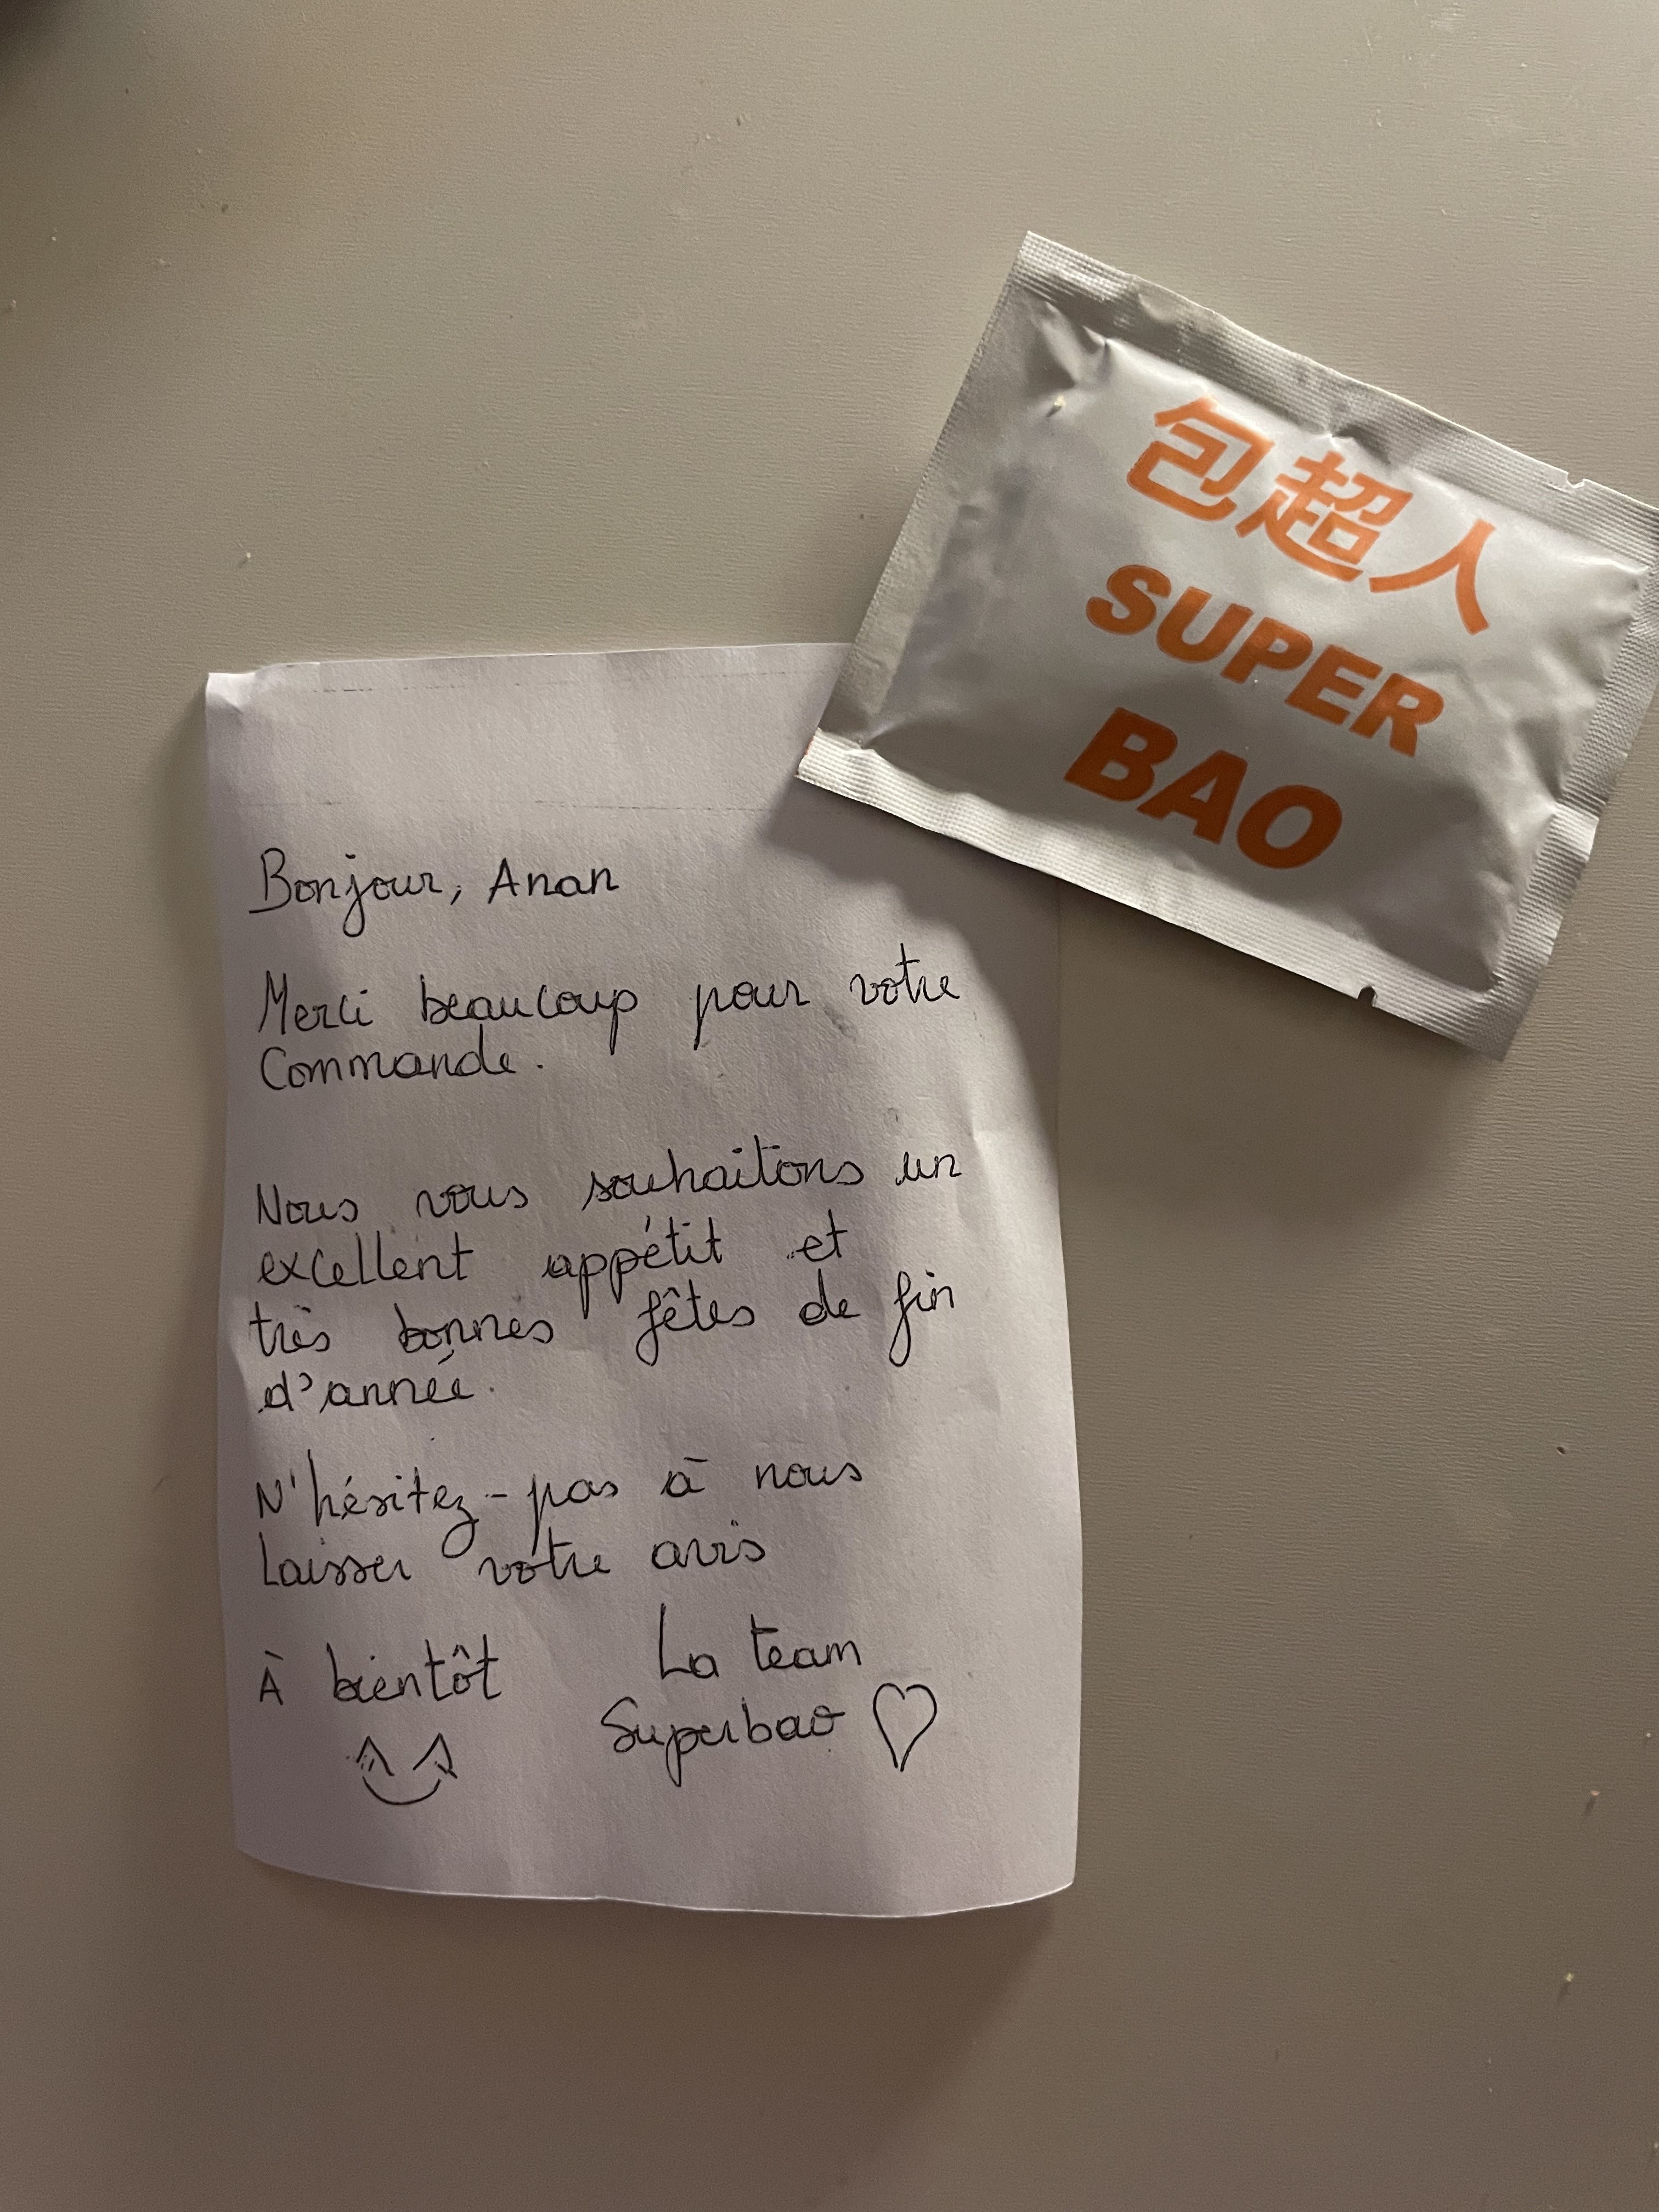 包超人
SUPER
BAO
Bonjour, Anan
Merci beaucoup pour votre
Commande.
Nous vous souhaitons un
excellent appétit et
très bonnes fêtes de fin
d'année.
N'hésitez-pas à nous
Laisser votre avis
À bientôt
La team
Superbao